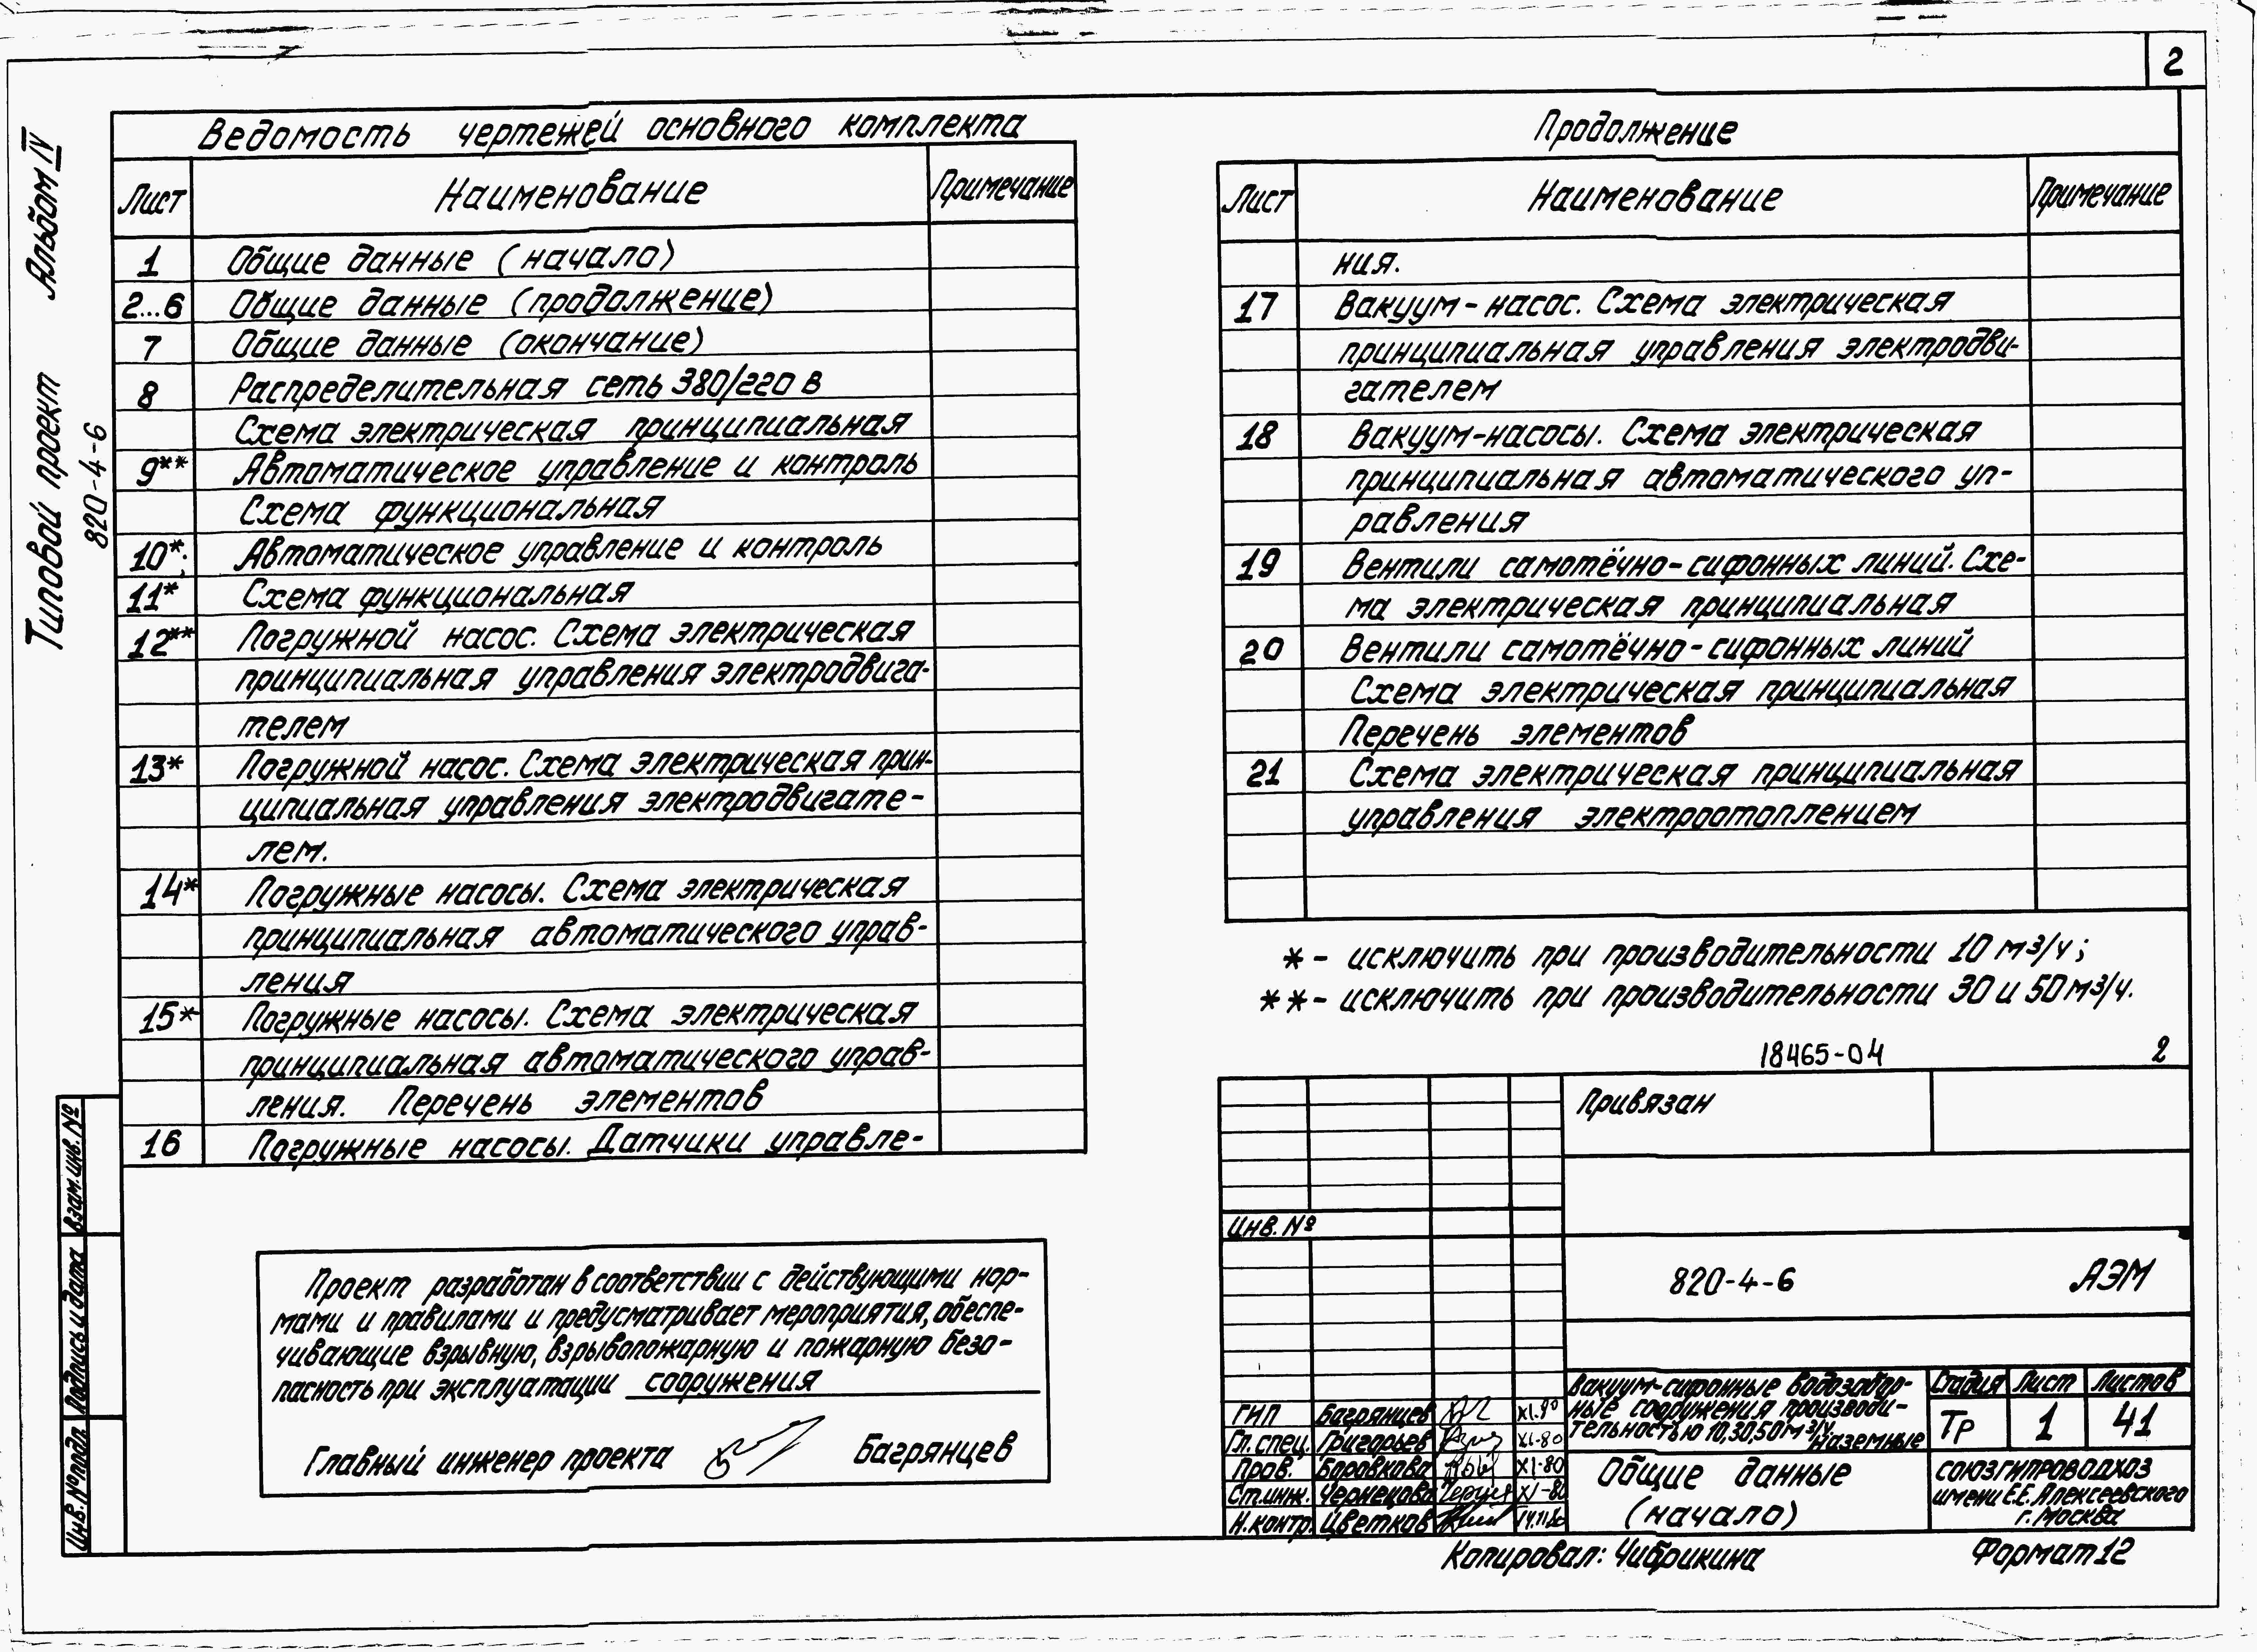 2
Альбом IV
Типовой проект
820-4-6
Ведомость чертежей основного комплекта
Лист Наименование Примечание
1 Общие данные (начало)
2...6 Общие данные (продолжение)
7 Общие данные (окончание)
8 Распределительная сеть 380/220 В
Схема электрическая принципиальная
9** Автоматическое управление и контроль
Схема функциональная
10*; Автоматическое управление и контроль
11* Схема функциональная
12** Погружной насос. Схема электрическая
принципиальная управления электродвига-
телем
13* Погружной насос. Схема электрическая прин-
ципиальная управления электродвигате-
лем.
14* Погружные насосы. Схема электрическая
принципиальная автоматического управ-
ления
15* Погружные насосы. Схема электрическая
принципиальная автоматического управ-
ления. Перечень элементов
16 Погружные насосы. Датчики управле-
Продолжение
Лист Наименование Примечание
ния.
17 Вакуум-насос. Схема электрическая
принципиальная управления электродви-
гателем
18 Вакуум-насосы. Схема электрическая
принципиальная автоматического уп-
равления
19 Вентили самотёчно-сифонных линий. Схе-
ма электрическая принципиальная
20 Вентили самотёчно-сифонных линий
Схема электрическая принципиальная
Перечень элементов
21 Схема электрическая принципиальная
управления электроотоплением
* - исключить при производительности 10 м3/ч;
** - исключить при производительности 30 и 50 м3/ч.
18465-04 2
Проект разработан в соответствии с действующими нор-
мами и правилами и предусматривает мероприятия, обеспе-
чивающие взрывную, взрывопожарную и пожарную безо-
пасность при эксплуатации сооружения
Главный инженер проекта Багрянцев
Взам. инв. №
Подпись и дата
Инв. № подл.
Привязан
Инв. №
820-4-6 АЭМ
Вакуум-сифонные водозабор-
ные сооружения производи-
тельностью 10,30,50 м3/ч.
Наземные
Стадия Лист Листов
Тр 1 41
ГИП Багрянцев XI.80
Гл. спец. Григорьев XI-80
Пров. Боровкова XI-80
Ст. инж. Чернецова XI-80
Н. контр. Цветков
Общие данные
(начало)
СОЮЗГИПРОВОДХОЗ
имени Е.Е. Алексеевского
г. Москва
Копировал: Чибрикина Формат 12